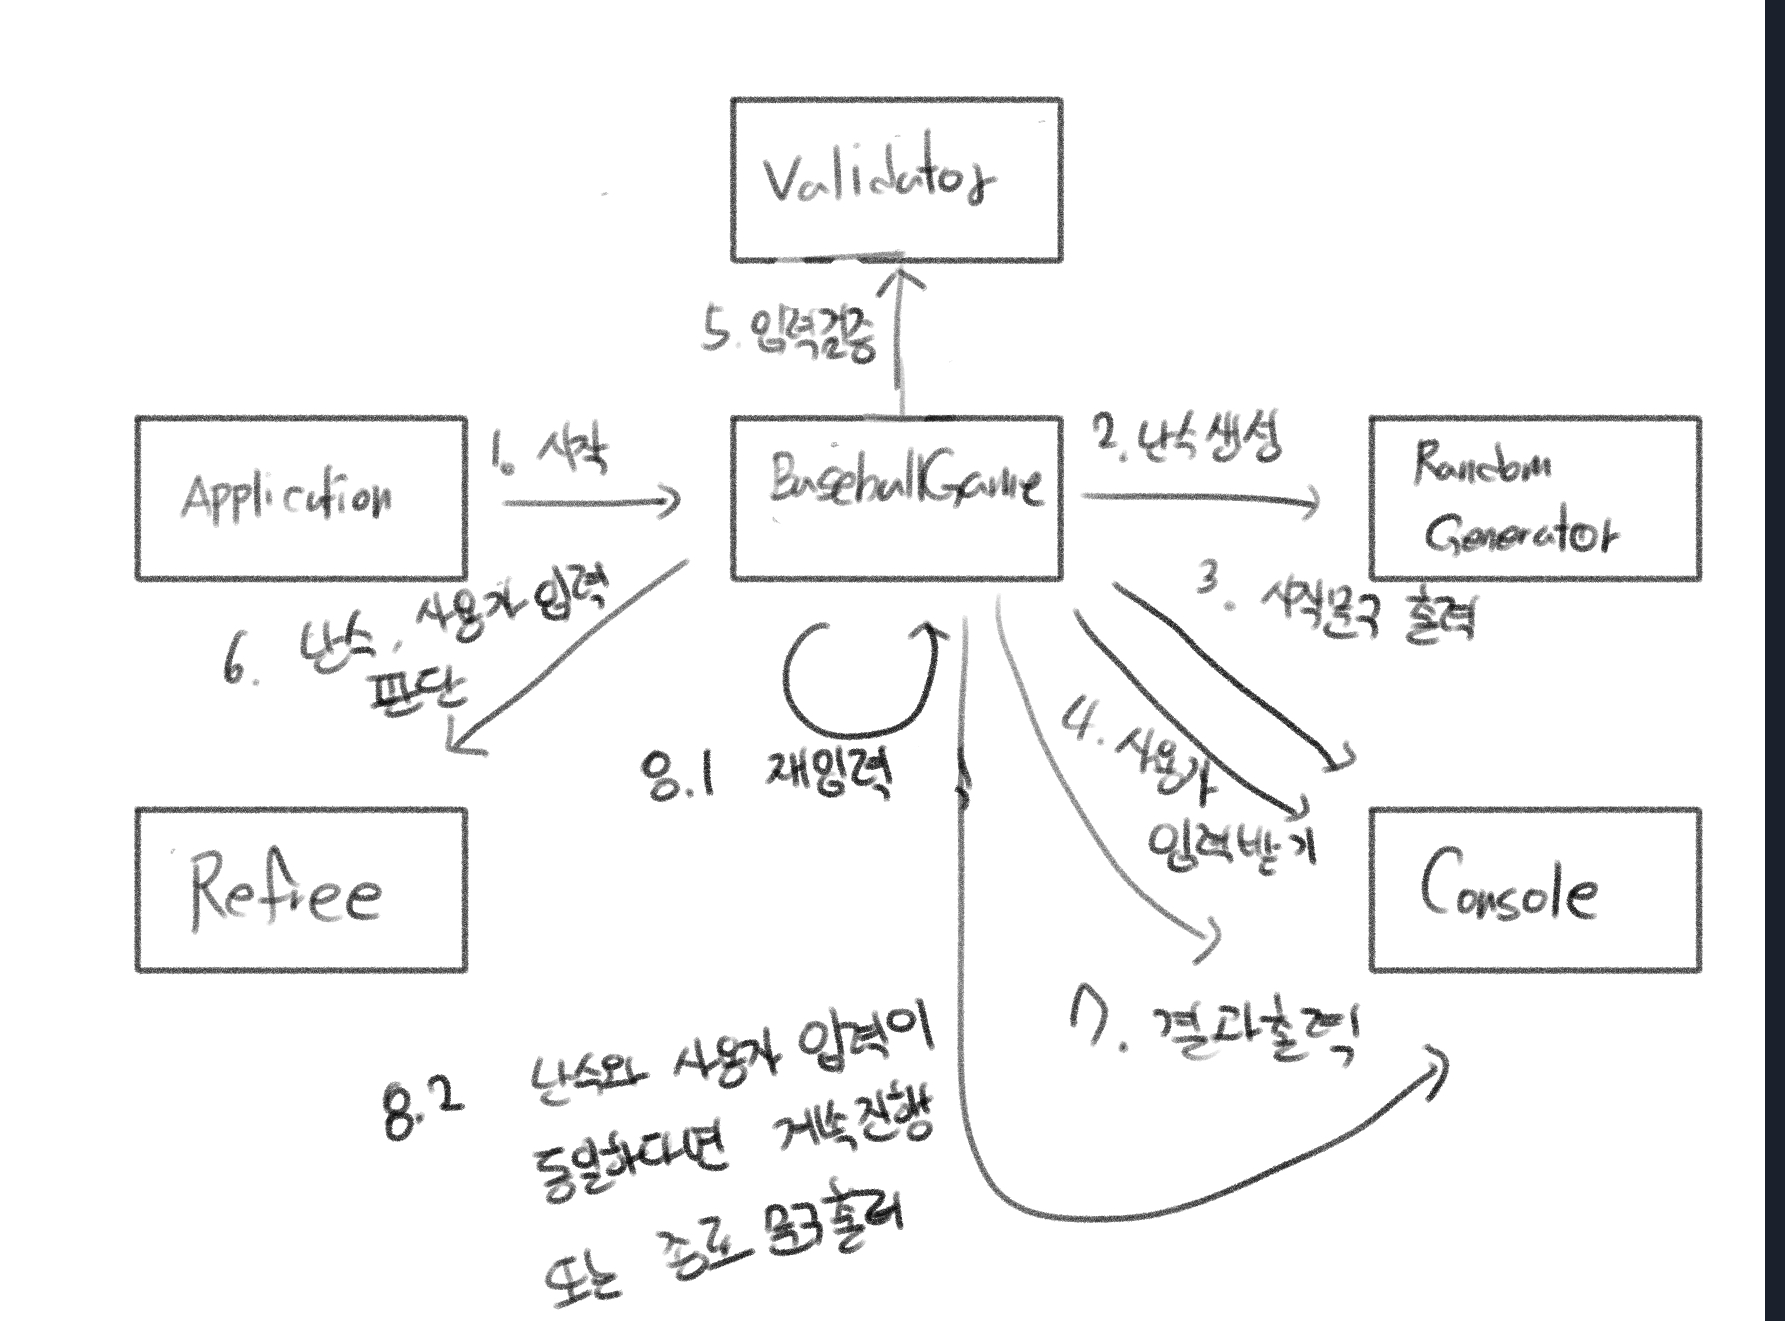 Validator
5. 입력검증
Application
1. 시작
BaseballGame
2. 난수 생성
Random
Generator
3. 시작문구 출력
6. 난수, 사용자 입력
판단
4. 사용자
입력받기
8.1 재입력
Refree
Console
7. 결과출력
8.2 난수와 사용자 입력이
동일하다면 계속진행
또는 종료 문구출력